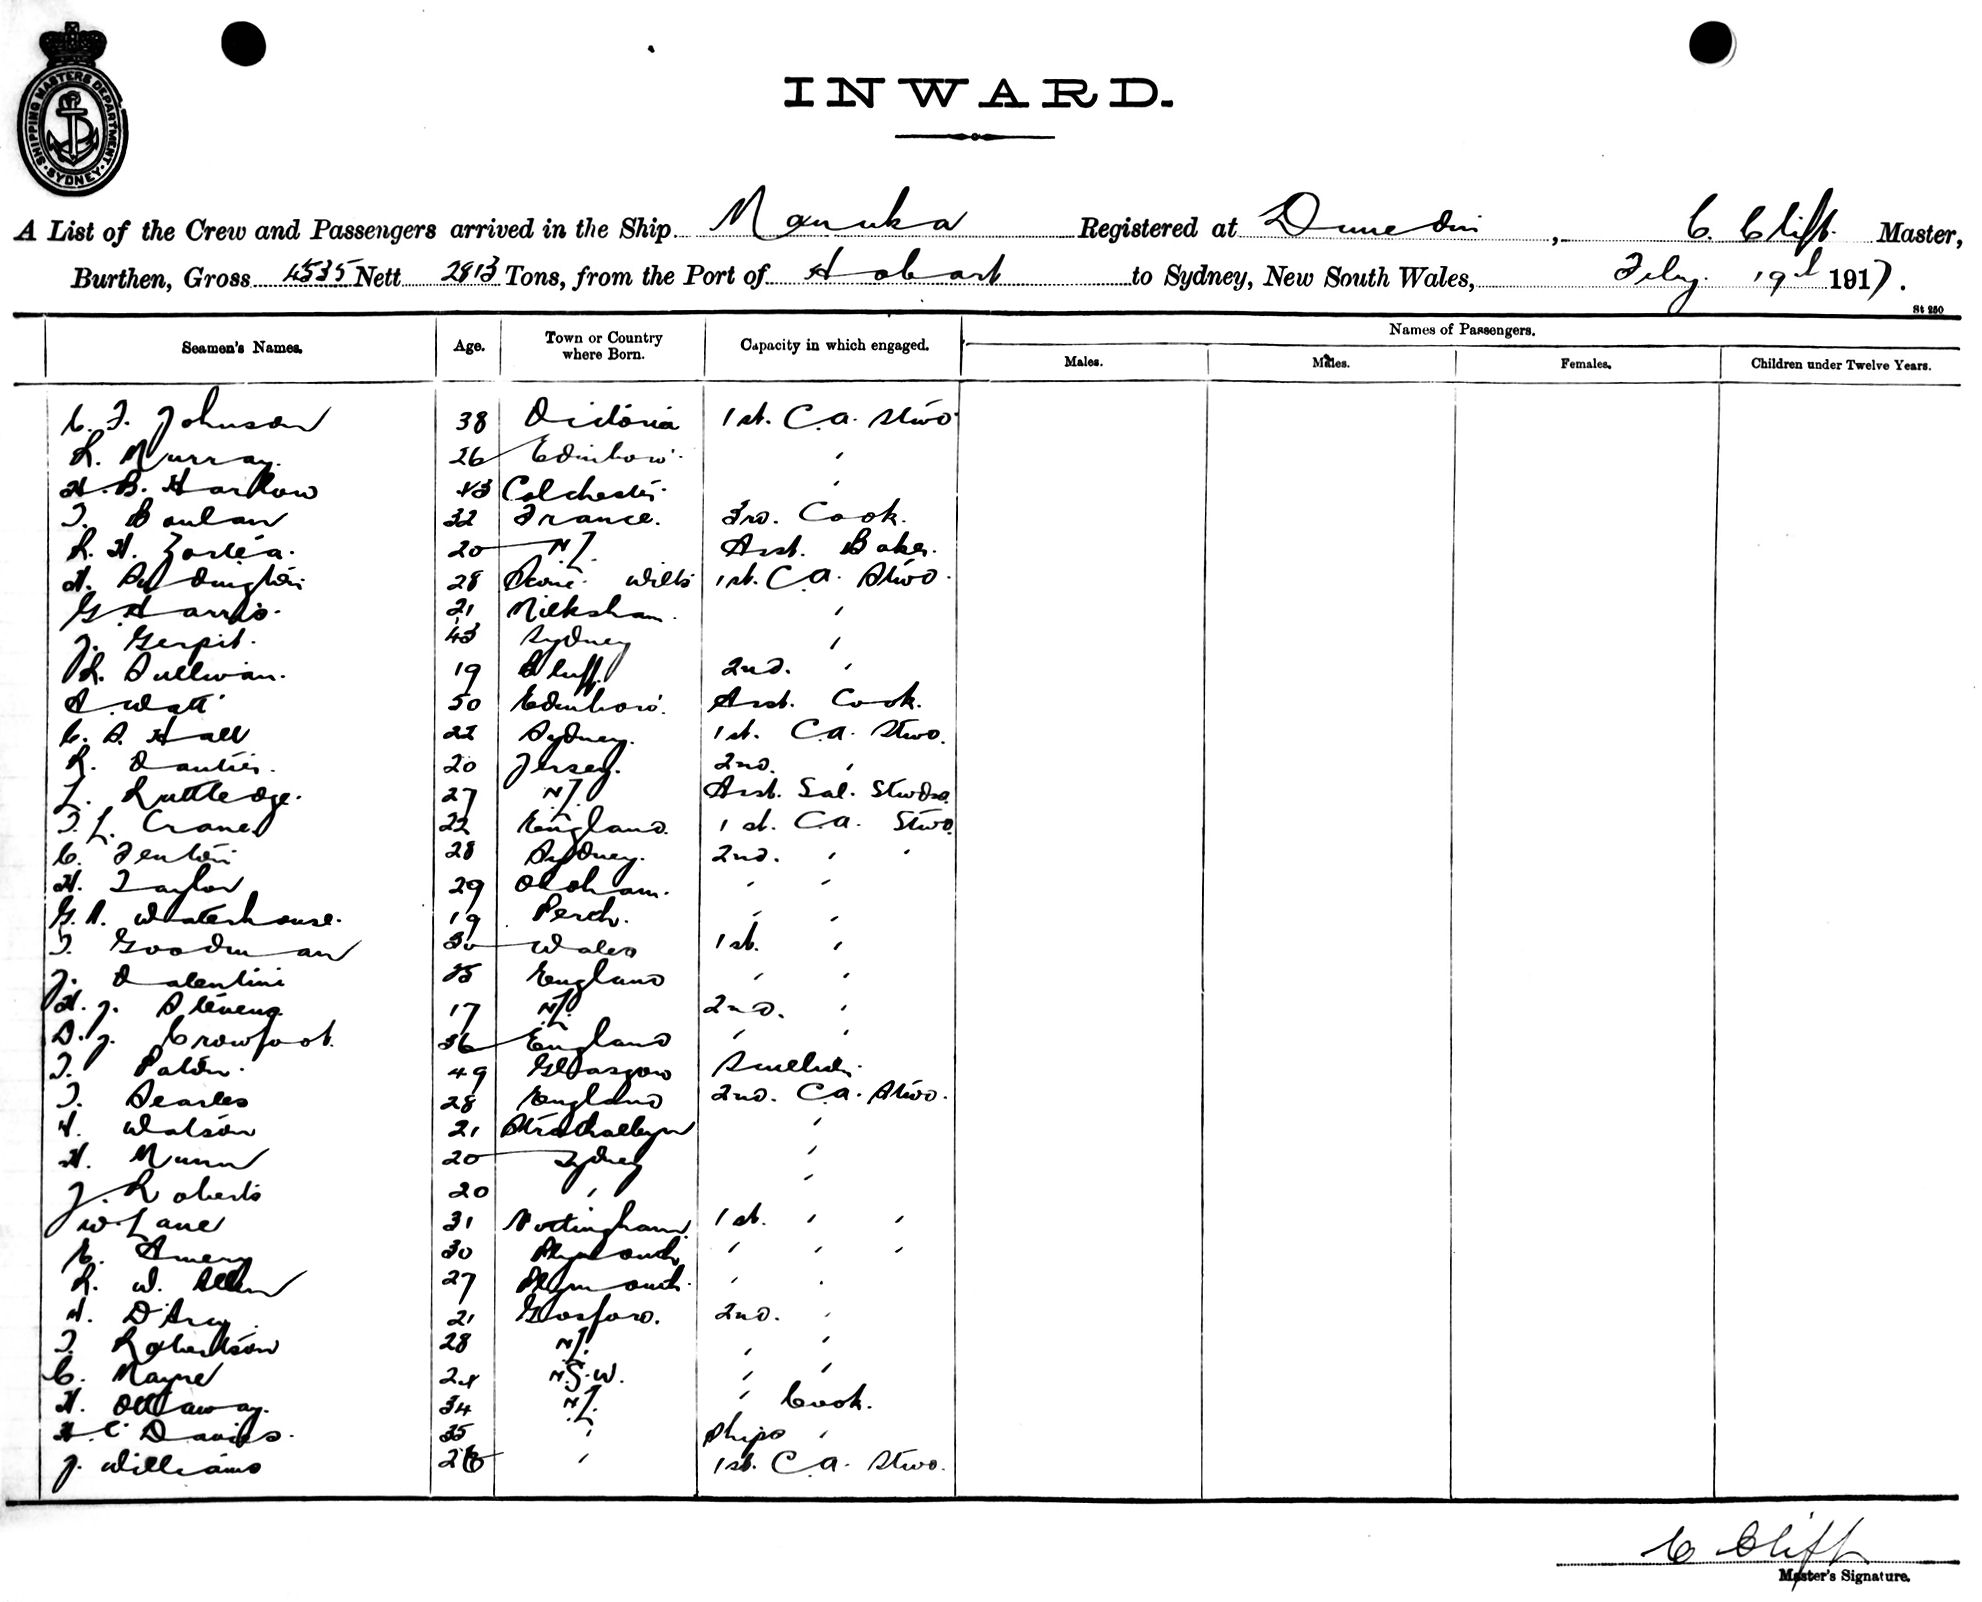 SHIPPING MASTERS DEPARTMENT · SYDNEY ·
INWARD.
A List of the Crew and Passengers arrived in the Ship Manuka Registered at Dunedin, C. Clift Master,
Burthen, Gross 4535 Nett 2813 Tons, from the Port of Hobart to Sydney, New South Wales, Feby. 19th 1917.
St 250
Seamen's Names. Age. Town or Country where Born. Capacity in which engaged. Names of Passengers.
Males. Males. Females. Children under Twelve Years.
C. F. Johnson 38 Victoria 1st. C.a. Stwd
R. Murray. 26 Edinboro'. "
H. B. Harlow 43 Colchester. "
T. 32 France. 3rd. Cook.
R. H. 20 N.Z. Asst. Baker.
H. 28 Wilts 1st. C.a. Stwd.
G. Harris. 21 Milksham. "
J. 43 Sydney "
R. Sullivan. 19 Bluff. 2nd. "
A. Watt 50 Edinboro'. Asst. Cook.
C. A. Hall 22 Sydney. 1st. C.a. Stwd.
R. 20 Jersey. 2nd. "
L. Ruttledge. 27 N.Z. Asst. Sal. Stwdss.
T. L. Crane 22 England. 1st. C.a. Stwd.
C. Fenton 28 Sydney. 2nd. " "
H. Taylor 29 Oldham. " "
G. A. Waterhouse. 19 Perth. " "
T. Goodman 30 Wales 1st. "
J. Valentine 35 England " "
H. J. Stevens 17 N.Z. 2nd. "
A. J. Crowfoot. 36 England " "
T. Paton. 49 Glasgow
T. Searles 28 England 2nd. C.a. Stwd.
H. Watson 21 Strathalbyn "
H. Munn 20 Sydney "
J. Roberts 20 " "
J W. Lane 31 Nottingham 1st. " "
E. Amery 30 Plymouth " " "
R. W. Allen 27 Plymouth. " "
H. D'Arcy. 21 Gosford. 2nd. "
T. Robertson 28 N.Z. " "
C. Mayne 24 N.S.W. " "
H. Ottaway. 34 N.Z. " Cook.
H. C. Davies. 35 " Ships "
J. Williams " 1st. C.a. Stwd.
C Clift
Master's Signature.